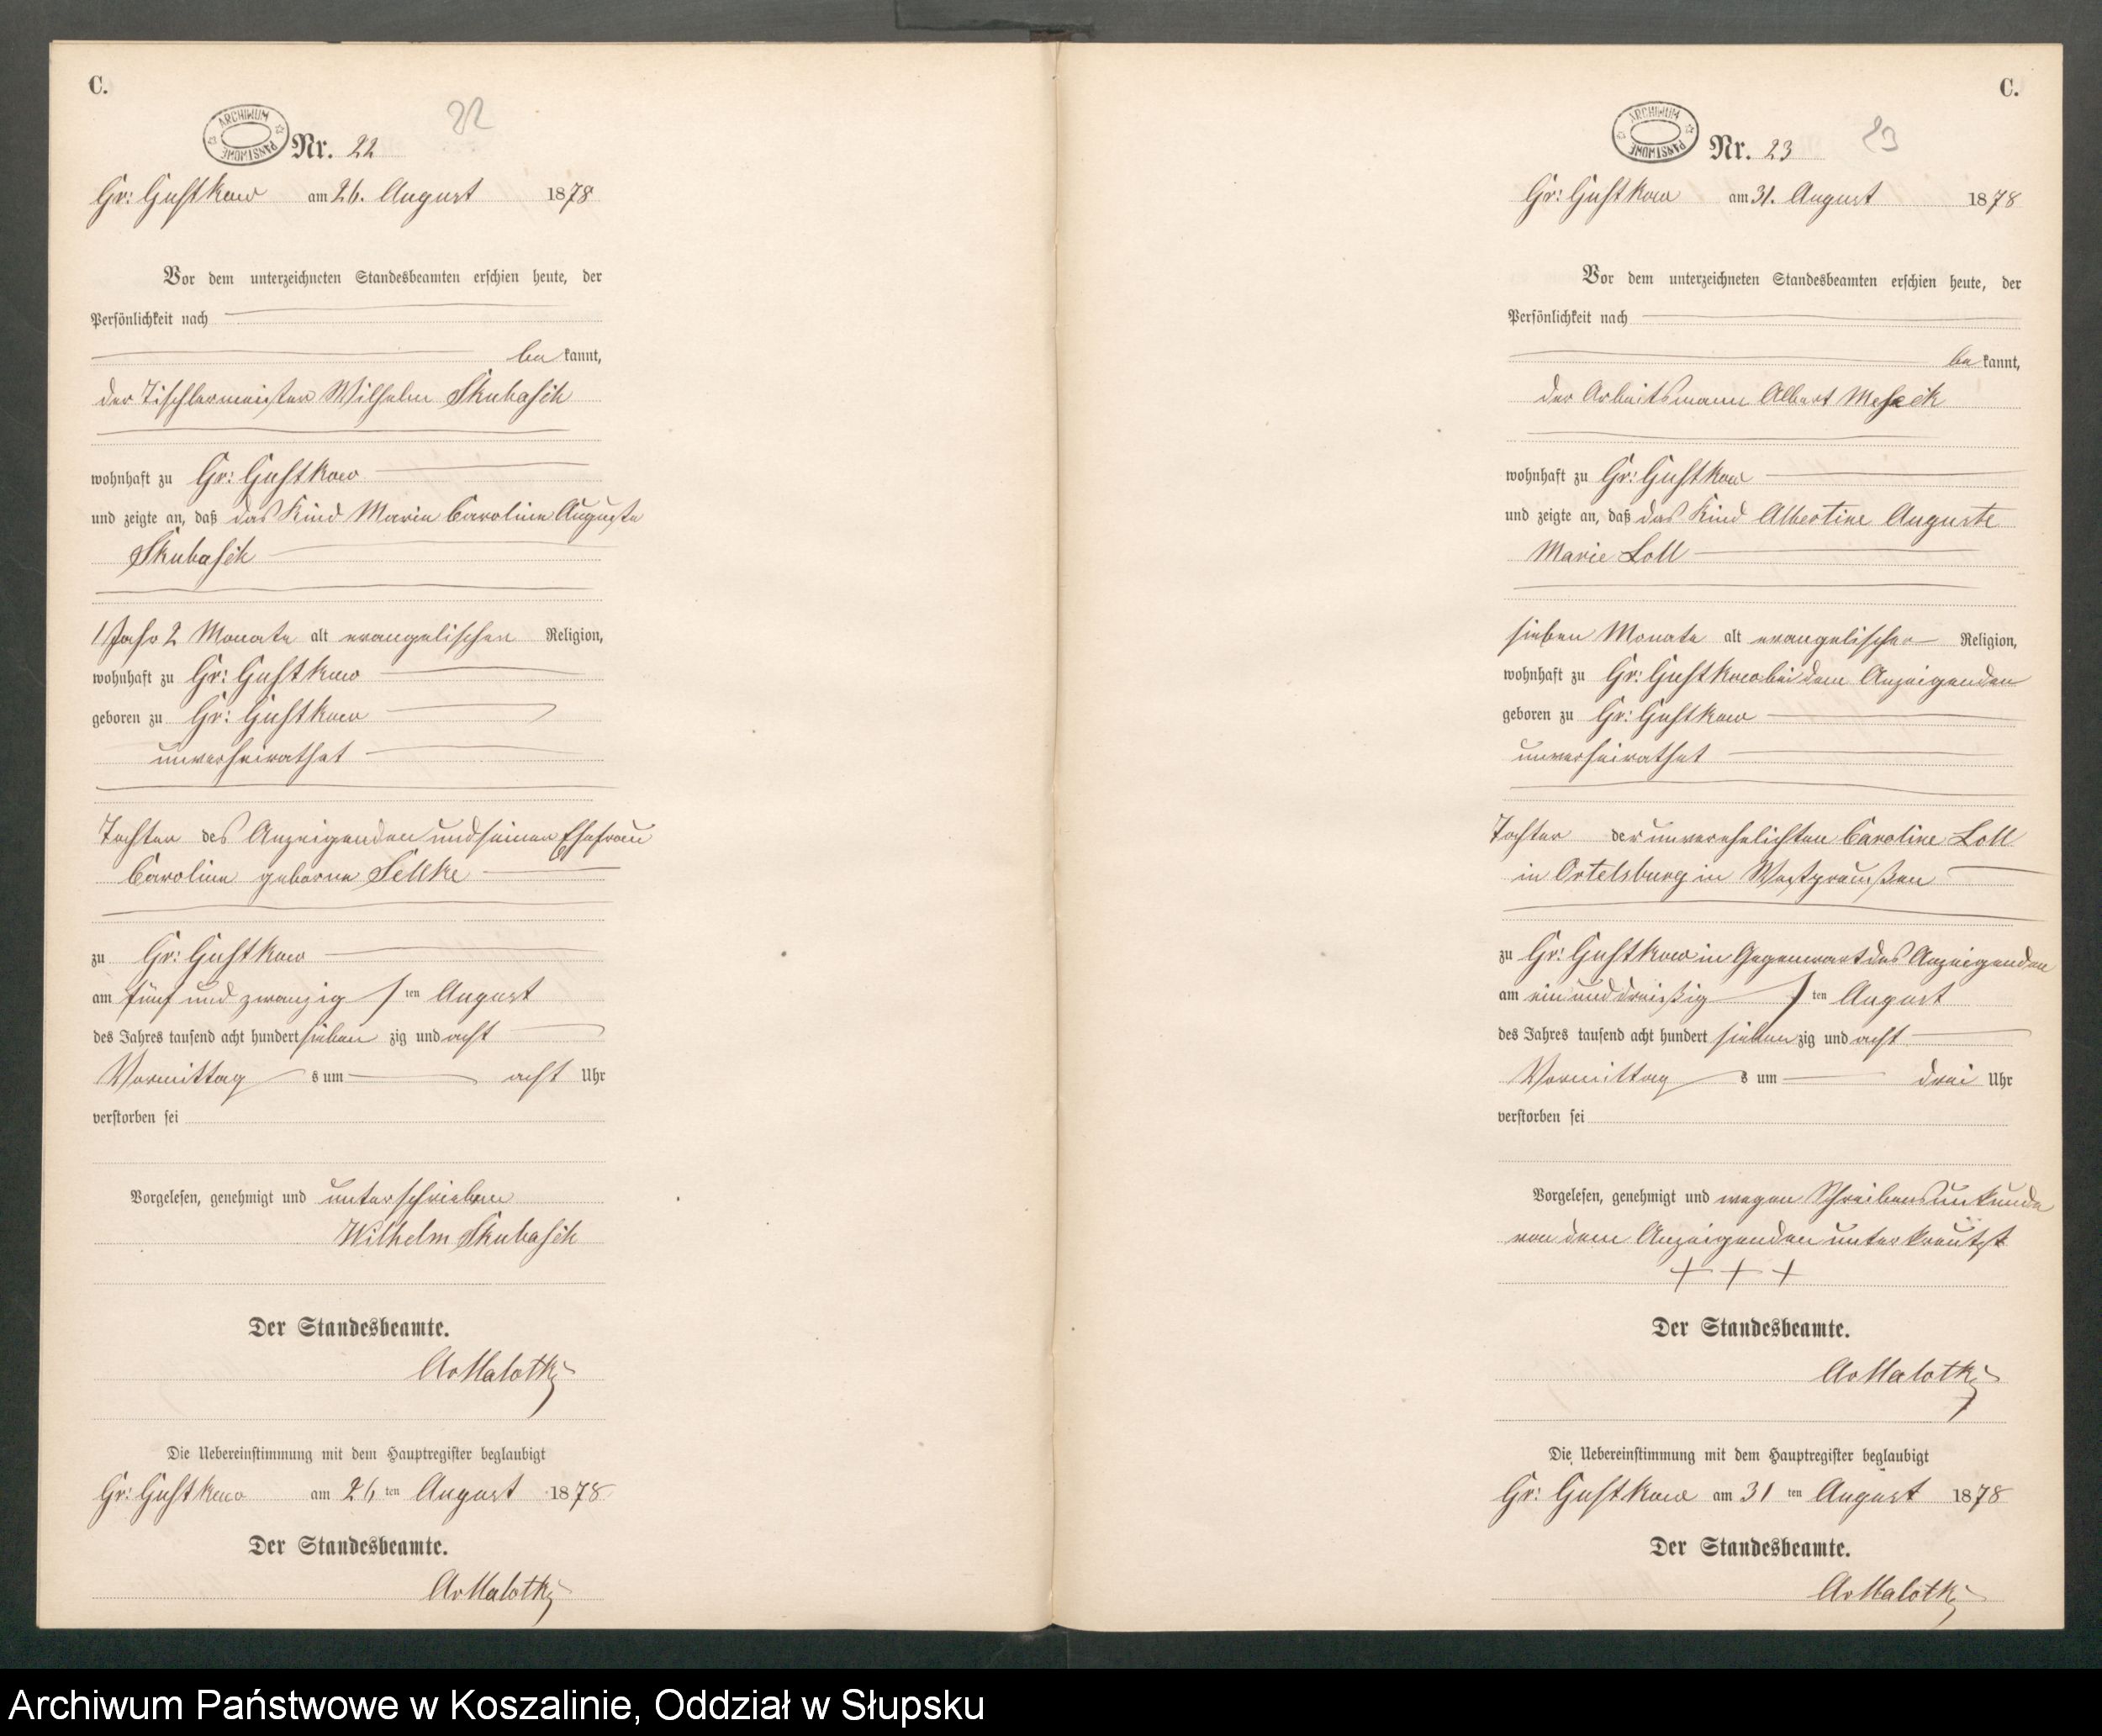 C.
ARCHIWUM PAŃSTWOWE
22
Nr. 22
Gr: Gustkow am 26. August 1878
Vor dem unterzeichneten Standesbeamten erschien heute, der
Persönlichkeit nach
be kannt,
der Tischlermeister Wilhelm Skubasch
wohnhaft zu Gr: Gustkow
und zeigte an, daß das Kind Marie Caroline Auguste
Skubasch
1 Jahr 2 Monate alt evangelischer Religion,
wohnhaft zu Gr: Gustkow
geboren zu Gr: Gustkow
unverheirathet
Tochter des Anzeigenden und seiner Ehefrau
Caroline geborne Sellke
zu Gr: Gustkow
am fünf und zwanzig ten August
des Jahres tausend acht hundert sieben zig und acht
Vormittag s um acht Uhr
verstorben sei
Vorgelesen, genehmigt und unterschrieben
Wilhelm Skubasch
Der Standesbeamte.
Die Uebereinstimmung mit dem Hauptregister beglaubigt
Gr: Gustkow am 26 ten August 1878
Der Standesbeamte.
C.
ARCHIWUM PAŃSTWOWE
23
Nr. 23
Gr: Gustkow am 31. August 1878
Vor dem unterzeichneten Standesbeamten erschien heute, der
Persönlichkeit nach
be kannt,
der Arbeitsmann Albert Meseck
wohnhaft zu Gr: Gustkow
und zeigte an, daß das Kind Albertine Auguste
Marie Loll
sieben Monate alt evangelischer Religion,
wohnhaft zu Gr: Gustkow bei dem Anzeigenden
geboren zu Gr: Gustkow
unverheirathet
Tochter der unverehelichten Caroline Loll
in Ortelsburg in Westpreußen
zu Gr: Gustkow in Gegenwart des Anzeigenden
am ein und dreißig ten August
des Jahres tausend acht hundert sieben zig und acht
Vormittag s um drei Uhr
verstorben sei
Vorgelesen, genehmigt und wegen Schreibensunkunde
von dem Anzeigenden unterkreutzt
+ + +
Der Standesbeamte.
Die Uebereinstimmung mit dem Hauptregister beglaubigt
Gr: Gustkow am 31 ten August 1878
Der Standesbeamte.
Archiwum Państwowe w Koszalinie, Oddział w Słupsku